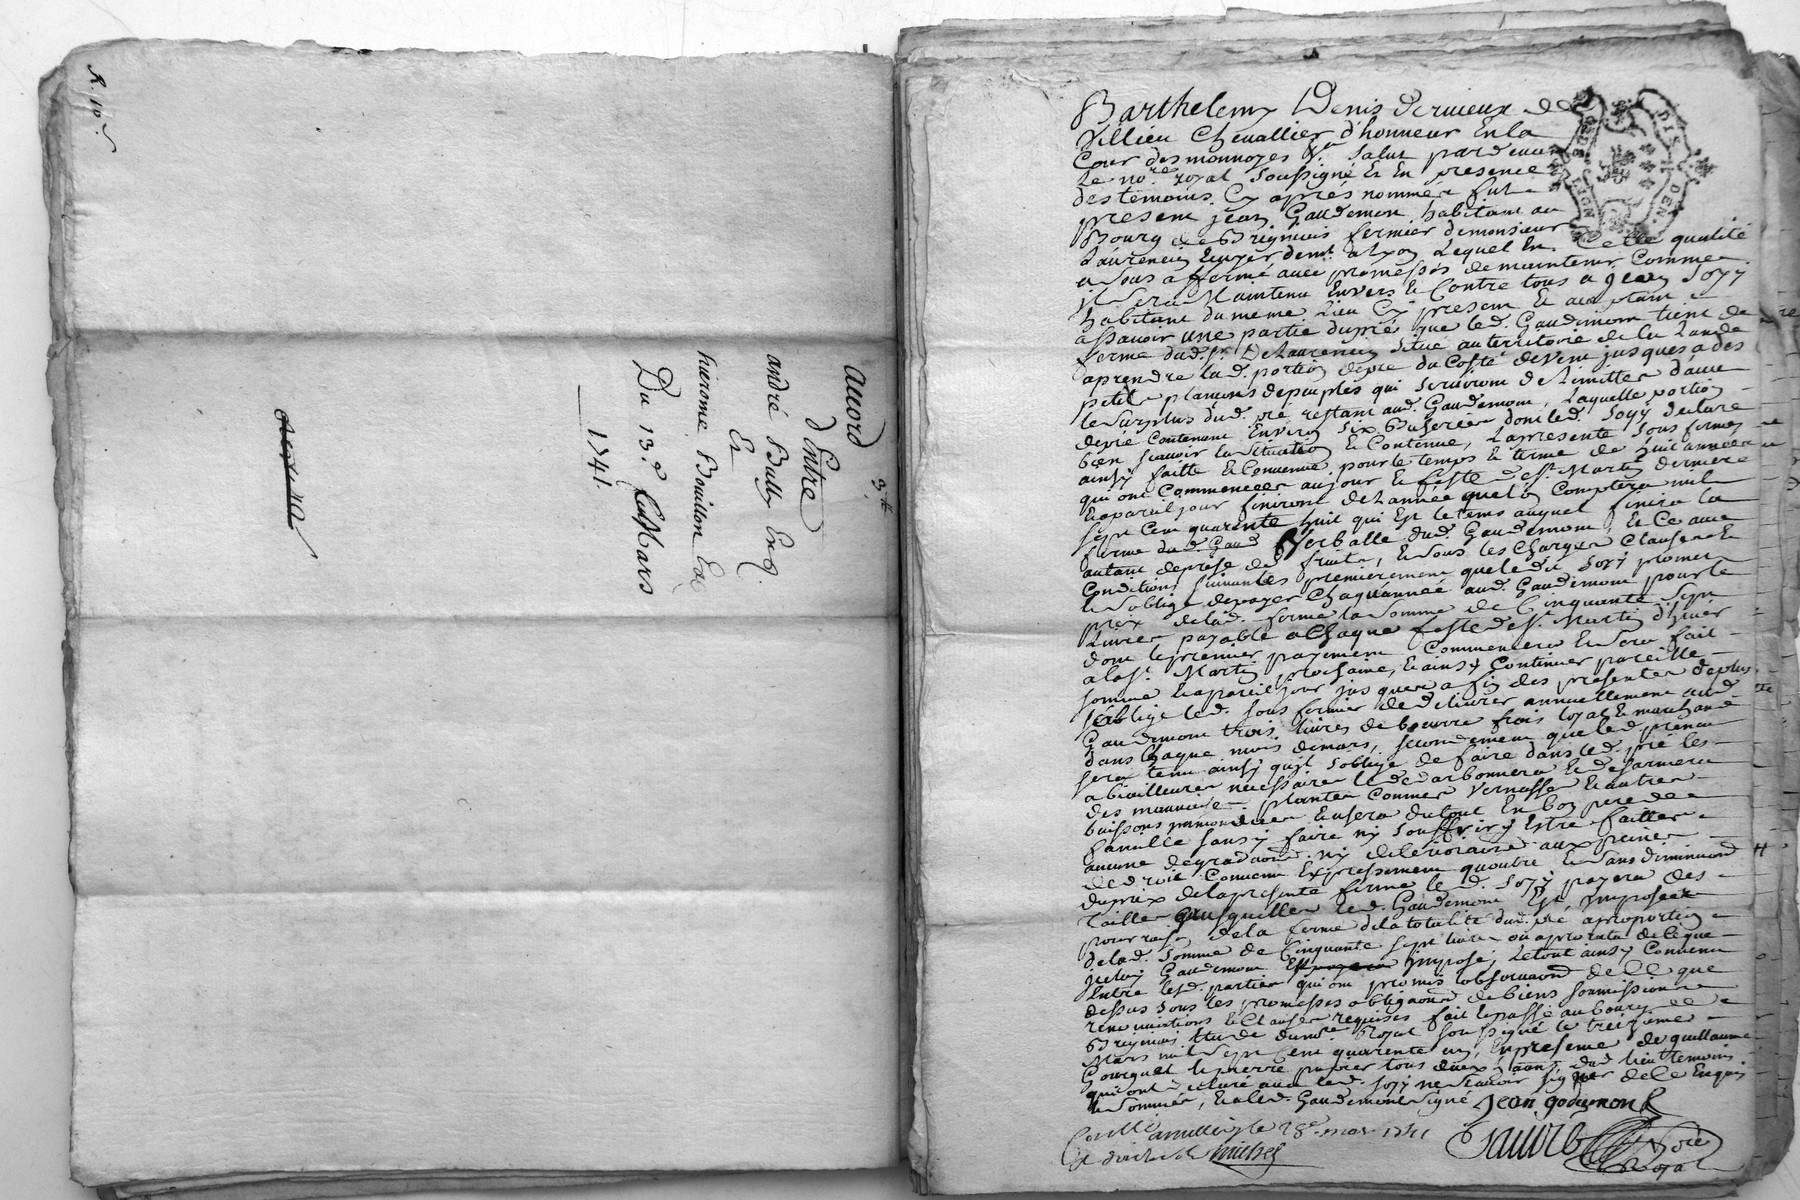 R. 10.s
3.tt
accord
d'Entre
andré Bully Exp.
Et
hierome Bouillon Exp
Du 13.e Mars
1741.
Barthelemy Denis dervieux de
Villieu Chevallier d'honneur En la
Cour des monnoyes &.a Salut pardevant
Le no.re royal Soussigné Et En presence
des temoins Cy aprés nommés fut
present jean Gaudemon habitant au
Bourg de Brignais fermier de monsieur
Laurencin Ecuyer dem.t a Lyon Lequel En Cette qualité
a sous affermé avec promesses de maintenir Comme
il Sera Maintenu Envers Et Contre tous a Jean Joyy
habitant du meme Lieu Cy present Et acceptant
assavoir une partie du pré que led. Gaudemon tient de
ferme dud. s.r De Laurencin Situé au territoire de la Lande
a prendre lad. portion de pré du Costé de Vent jusques a des
petits plançons de peuples qui Serviront de Limittes d'avec
le Surplus dud. pré restant aud. Gaudemon, Laquelle portion
de pré Contenant Environ Six Bicherées dont led. Joyy declare
bien scavoir la Situation Et Contenue, La presente Sous ferme
ainsy faitte Et Convenue pour le temps Et terme de huit années
qui ont Commencées au jour Et feste de S.t Martin derniere
Et a pareil jour finiront de L'année que l'on Comptera mil
Sept Cent quarente huit qui Est le tems auquel finira la
ferme Verballe dud. Gaudemon, Et Ce avec
autant de prise de fruits, Et Sous les Charges Clauses Et
Conditions Suivantes premierement que led. Joyy promet
Et S'oblige de payer Chaque année aud. Gaudemon pour le
prix de lad. ferme la Somme de Cinquante Sept
Livres payable a Chaque feste de S.t Martin d'hiver
dont le premier payement Commencera Et Sera fait
a la S.t Martin prochaine, Et ainsy Continuer pareille
somme Et a pareil jour jusques a fin des presentes de plus
s'oblige led. sous fermier de delivrer annuellement aud.
Gaudemon trois livres de beurre frais loyal Et marchand
dans Chaque mois de mars, secondement que led. preneur
sera tenu ainsy qu'il s'oblige de faire dans led. pré les
des mauvaises plantes Comme Vernasses Et autres
buissons Et usera du tout En bon pere de
famille Sans y faire ny Souffrir y Estre faittes
aucune degradaon. ny deterioraon aux peines
de droit Convenu Expressement qu'outre Et Sans diminuaon
du prix de la presente ferme led. Joyy payera des
Tailles Gaudemon Est Imposé
pour raison de la ferme de la totalité dud. pré a proportion
de lad. Somme de Cinquante Sept livres ou a prorata de Ce que
Gaudemon imposé, Le tout ainsy Convenu
Entre lesd. parties qui ont promis l'observaon de Ce que
dessus Sous les promesses obligaons de biens soumissions
renonciations Et Clauses requises fait Et passé au bourg de
Brignais Etude du no.re Royal Soussigné le treizieme
Mars mil Sept Cent quarente un, En presence de guillaume
Gourguet Et pierre tous deux dud. lieu temoins
qui ont declaré avec led. Joyy ne Scavoir Signer de Ce Enquis
Et Sommés, Et a led. Gaudemont Signé jean godemont
Controllé a millery le 28e mar 1741